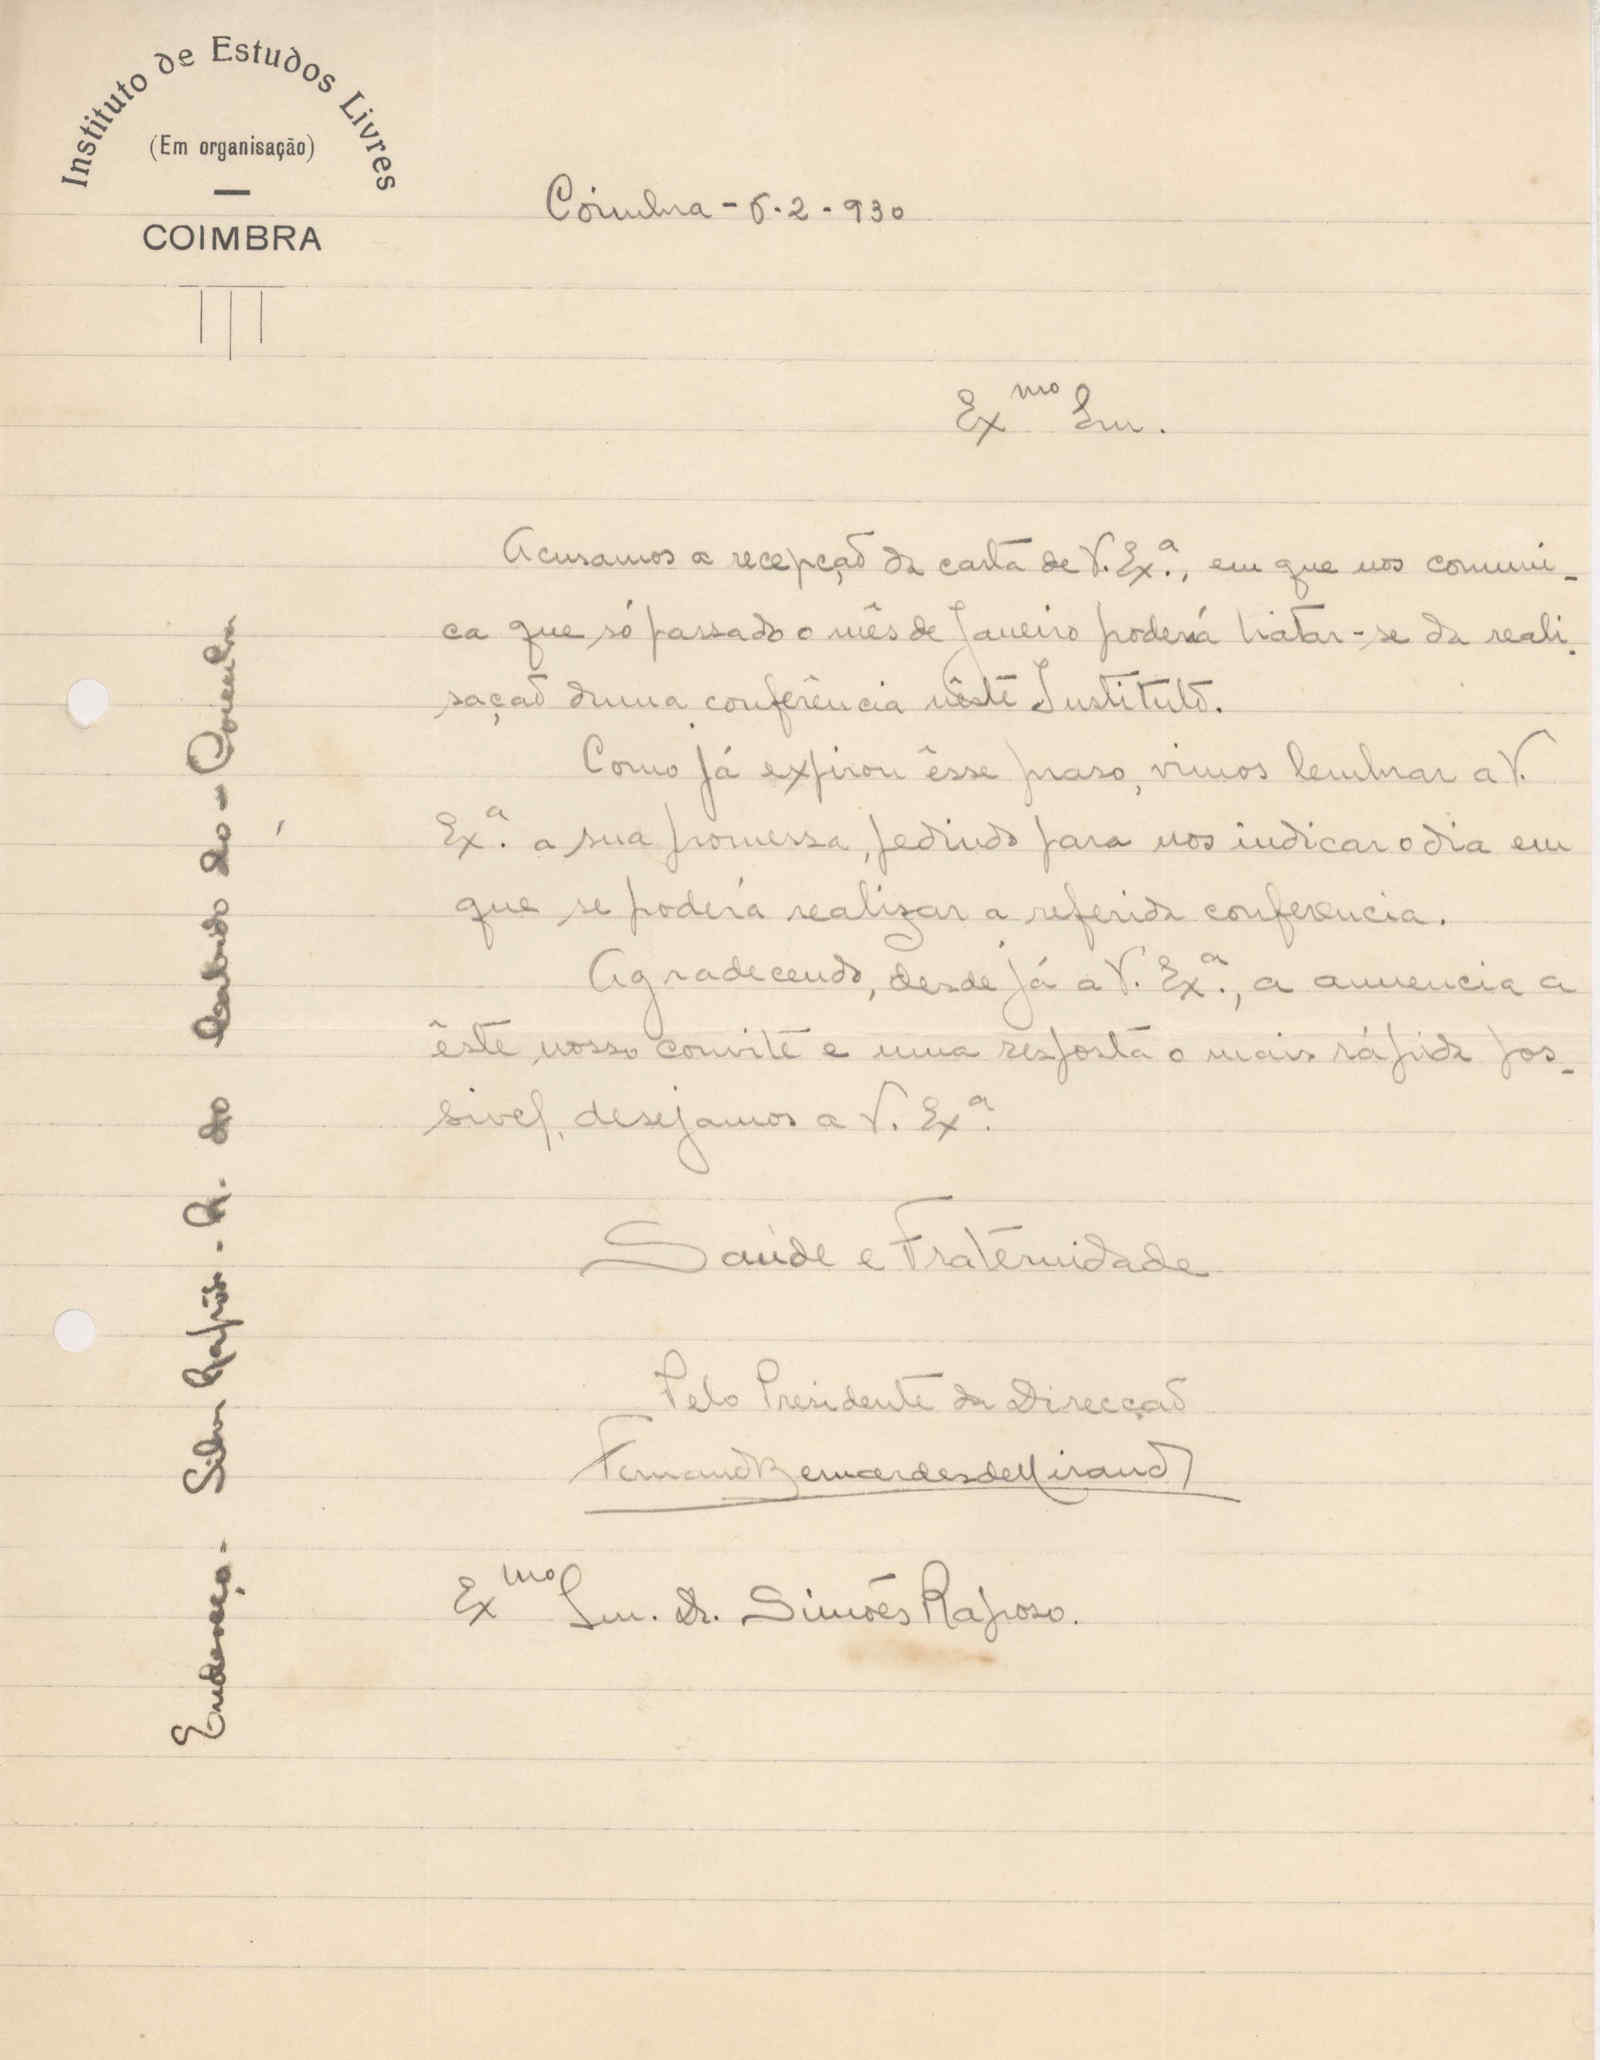 Instituto de Estudos Livres
(Em organisação)
COIMBRA
Coimbra - 6 - 2 - 930
Exmo Snr.
Acusamos a recepção da carta de V. Ex.ª, em que nos comuni-
ca que só passado o mês de Janeiro poderá tratar-se da reali-
sação duma conferência nêste Instituto.
Como já expirou êsse praso, vimos lembrar a V.
Ex.ª a sua promessa, pedindo para nos indicar o dia em
que se poderá realizar a referida conferencia.
Agradecendo, desde já a V. Ex.ª, a anuencia a
êste nosso convite e uma resposta o mais rápida pos-
sivel, desejamos a V. Ex.ª
Saúde e Fraternidade
Pelo Presidente da Direcção
Fernando Bernardes de Miranda
Exmo Snr. Dr. Simões Raposo.
Endereço - Silva Gafo - R. do - Coimbra